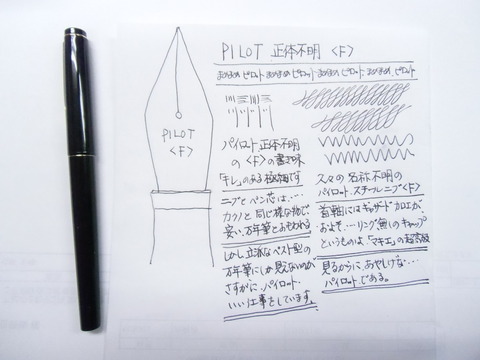 PILOT 正体不明 <F>
PILOT
<F>
パイロット 正体不明
の <F> の書き味
「キレ」のある極細です
ニブとペン芯は‥‥
カクノと同じ様な物で、
安い万年筆とおもわれる
しかし立派なベスト型の
万年筆にしか見えないのが
さすがに、パイロット、
いい仕事をしています。
久々の名称不明の
パイロット、スチールニブ<F>
首軸にはギャザード加工が
およそ‥‥リング無しのキャップ
というものは「マキエ」の超高級
見るからに、あやしげな‥‥
パイロットである。